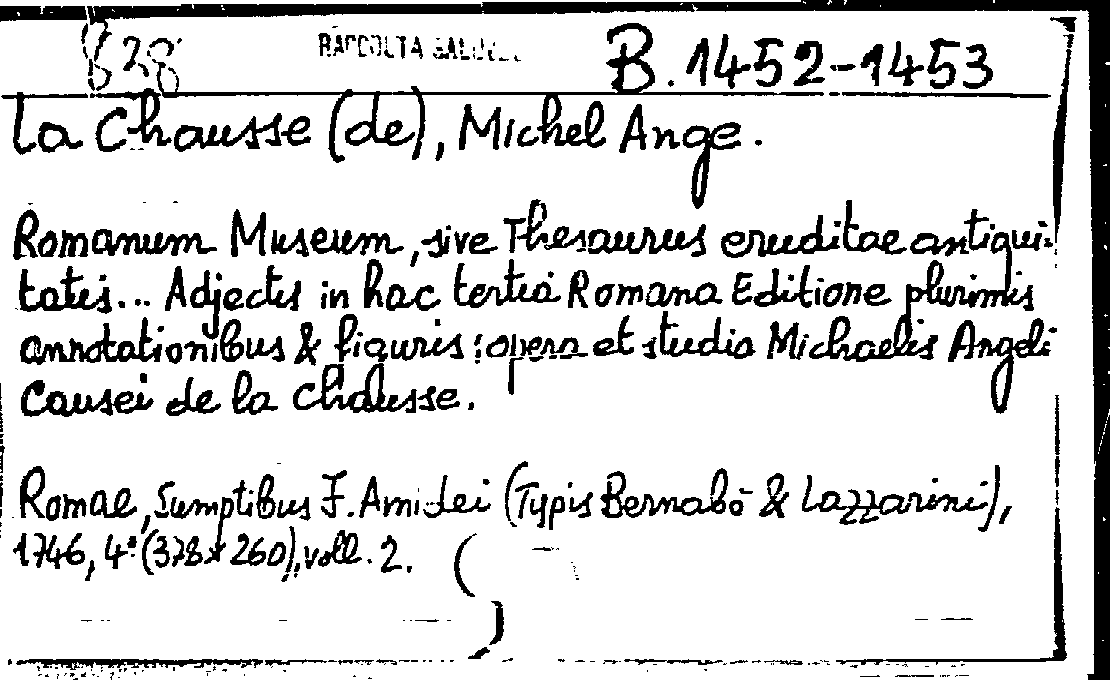 828 RACCOLTA B.1452-1453
La Chausse (de), Michel Ange.
Romanum Museum, sive Thesaurus eruditae antiqui-
tatis... Adjectis in hac tertia Romana Editione plurimis
annotationibus & figuris: opera et studio Michaelis Angeli
Causei de la Chausse.
Romae, Sumptibus F. Amidei (Typis Bernabò & Lazzarini),
1746, 4º (378x260), voll. 2. (
)